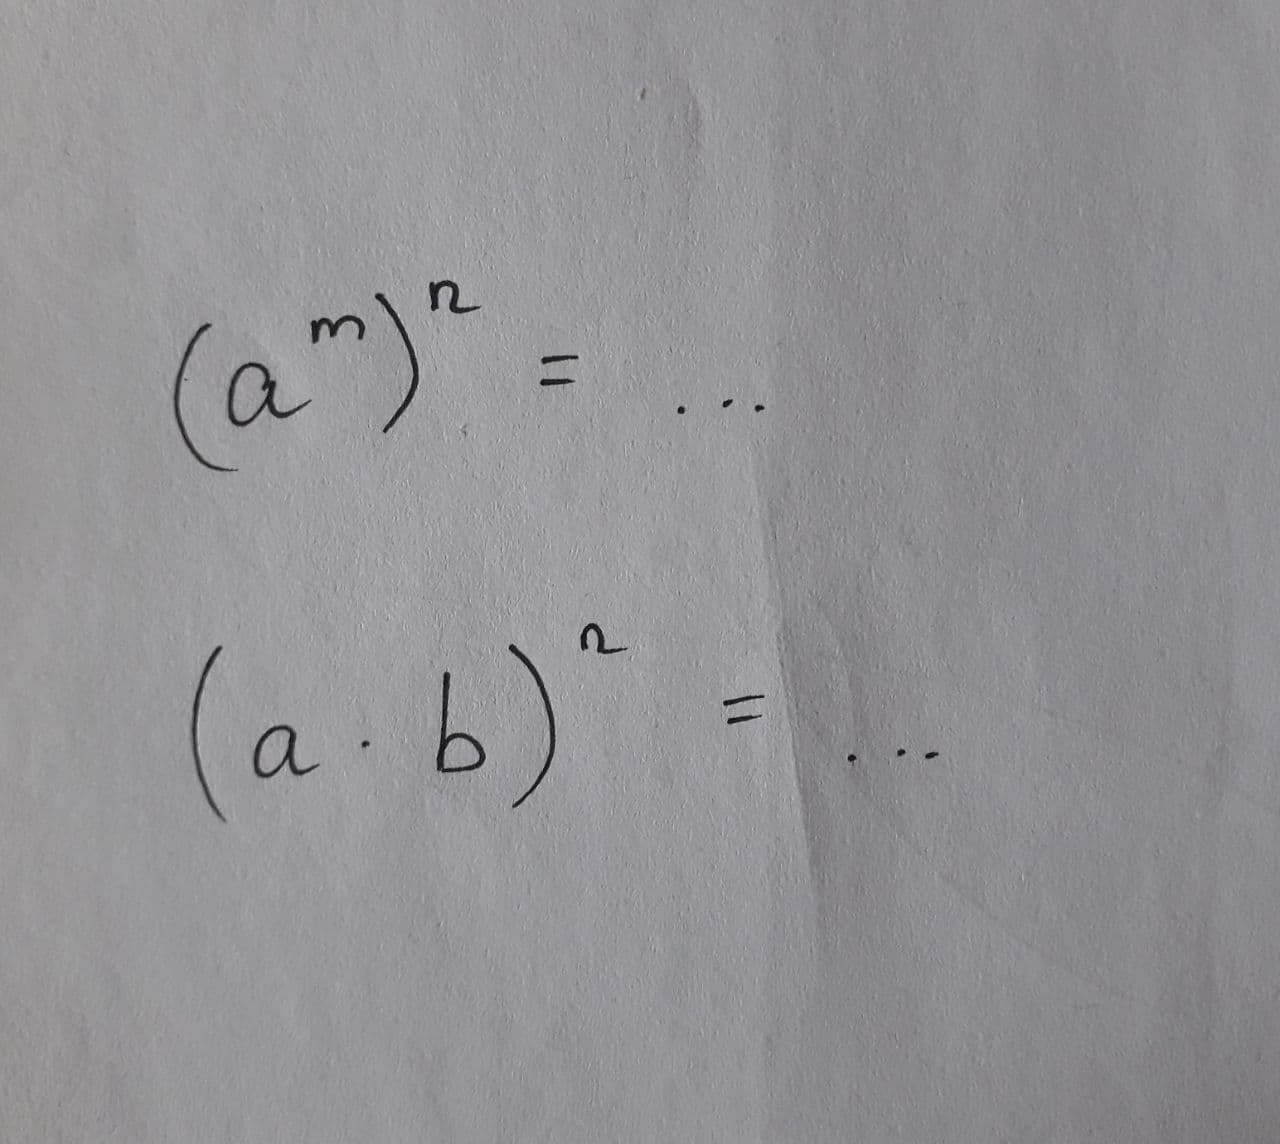 (a^m)^n = ...
(a · b)^n = ...